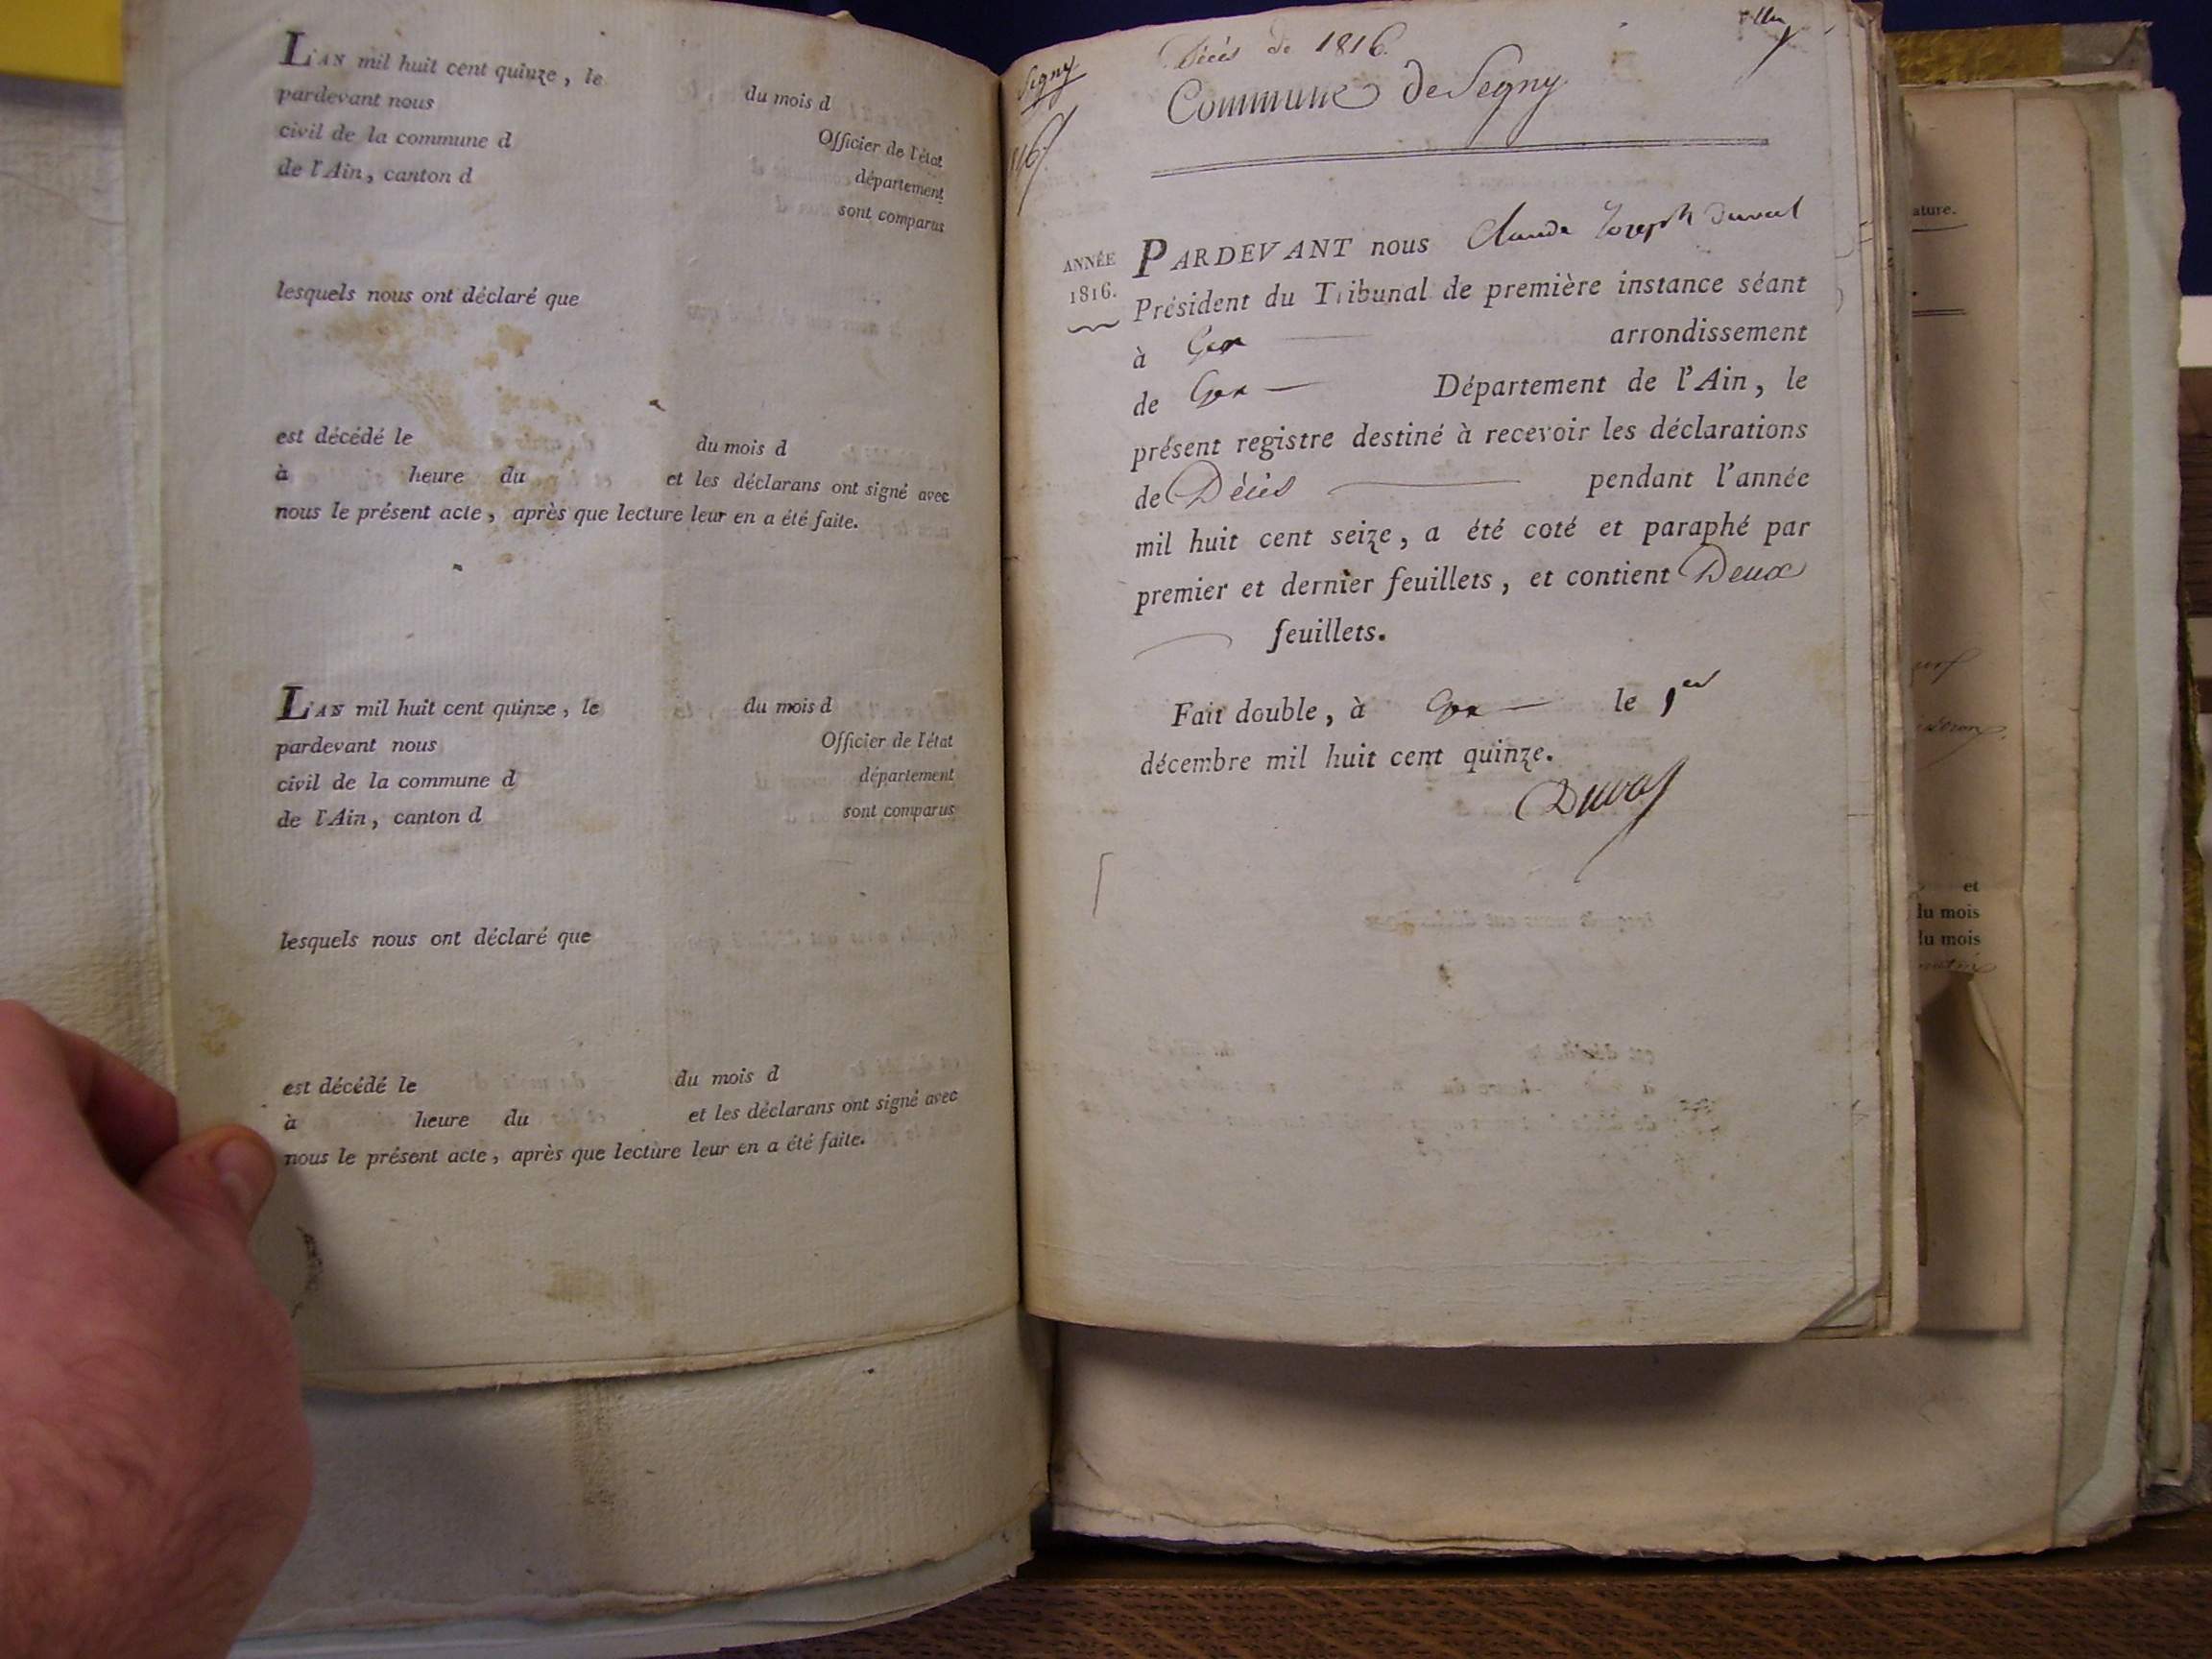 L'AN mil huit cent quinze, le du mois d
pardevant nous Officier de l'état
civil de la commune d département
de l'Ain, canton d sont comparus
lesquels nous ont déclaré que
est décédé le du mois d
à heure du et les déclarans ont signé avec
nous le présent acte, après que lecture leur en a été faite.
L'AN mil huit cent quinze, le du mois d
pardevant nous Officier de l'état
civil de la commune d département
de l'Ain, canton d sont comparus
lesquels nous ont déclaré que
est décédé le du mois d
à heure du et les déclarans ont signé avec
nous le présent acte, après que lecture leur en a été faite.
Segny
Décès de 1816.
Commune de Segny
ANNÉE
1816.
PARDEVANT nous Claude Joseph Duval
Président du Tribunal de première instance séant
à Gex arrondissement
de Gex Département de l'Ain, le
présent registre destiné à recevoir les déclarations
de Décès pendant l'année
mil huit cent seize, a été coté et paraphé par
premier et dernier feuillets, et contient Deux
feuillets.
Fait double, à Gex le 1er
décembre mil huit cent quinze.
Duval
ature.
et
du mois
du mois